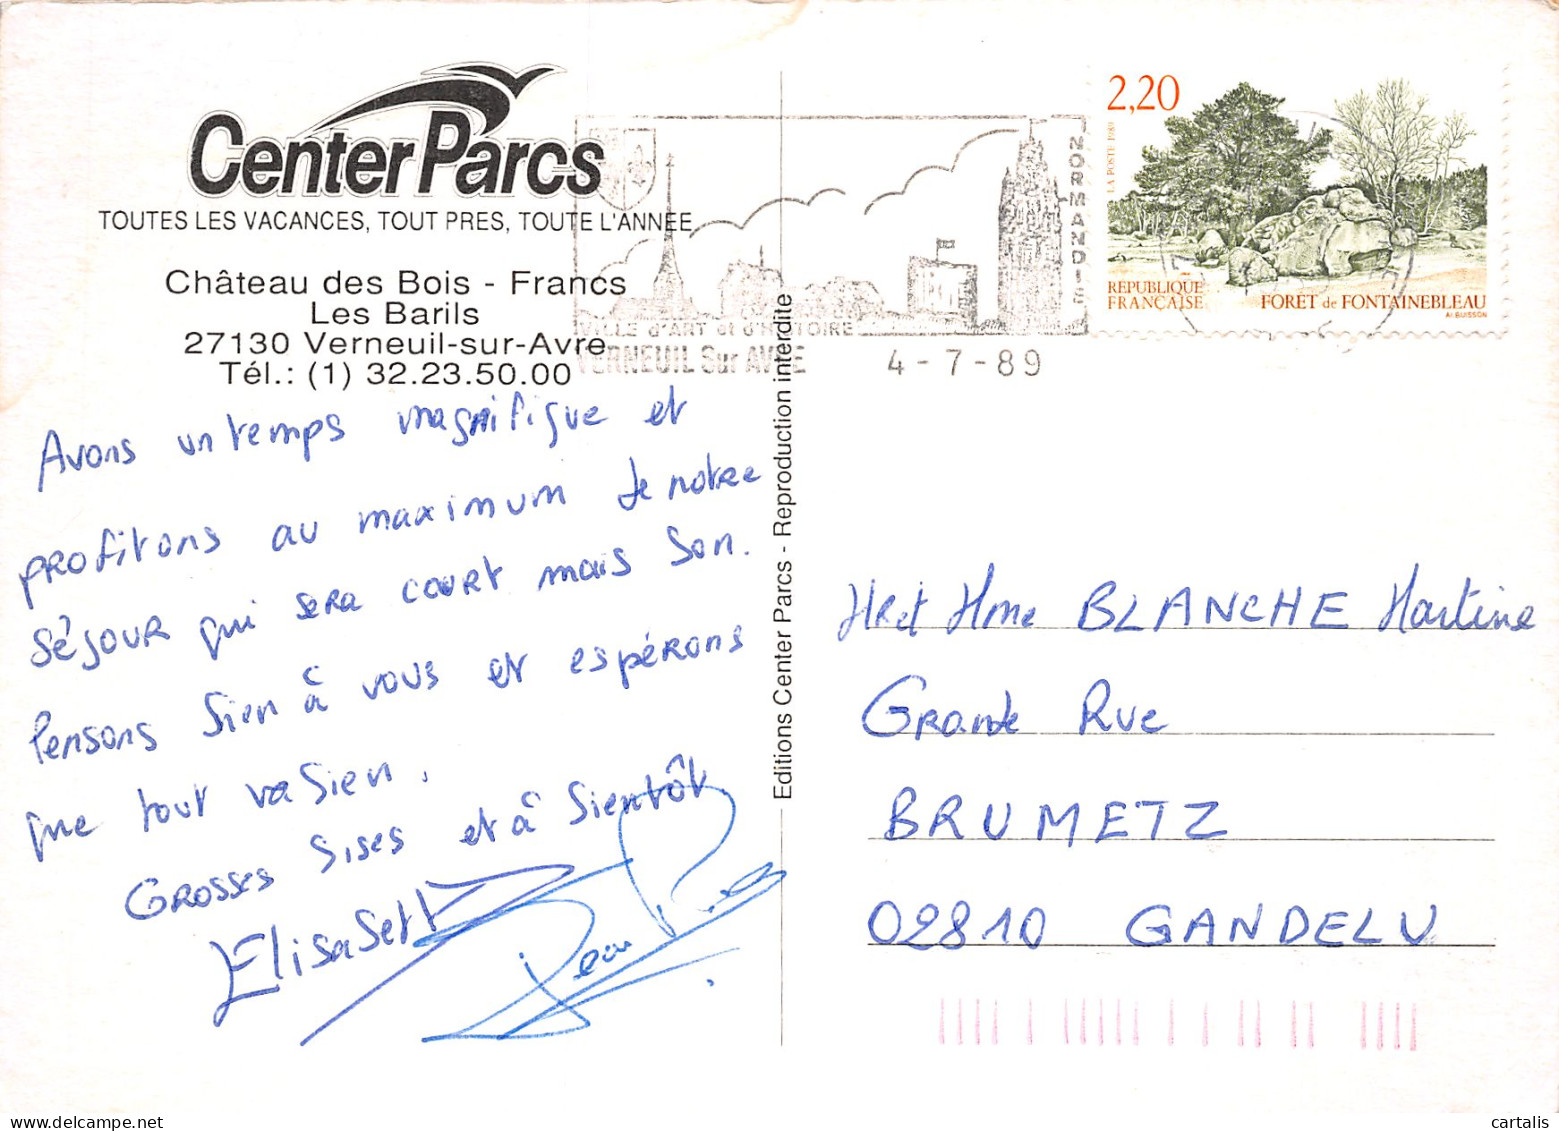 Center Parcs
TOUTES LES VACANCES, TOUT PRES, TOUTE L'ANNEE
Château des Bois - Francs
Les Barils
27130 Verneuil-sur-Avre
Tél.: (1) 32.23.50.00
Avons un temps magnifique et
profitons au maximum de notre
séjour qui sera court mais bon.
Pensons bien à vous et espérons
que tout va bien.
Grosses bises et à bientôt
Elisabeth
Jean
Editions Center Parcs - Reproduction interdite
NORMANDIE
VILLE d'ART et d'HISTOIRE
VERNEUIL Sur AVRE
4-7-89
2,20
LA POSTE 1989
REPUBLIQUE
FRANÇAISE
FORÊT de FONTAINEBLEAU
Al. BUISSON
Mr et Mme BLANCHE Martine
Grande Rue
BRUMETZ
02810 GANDELU
cartalis